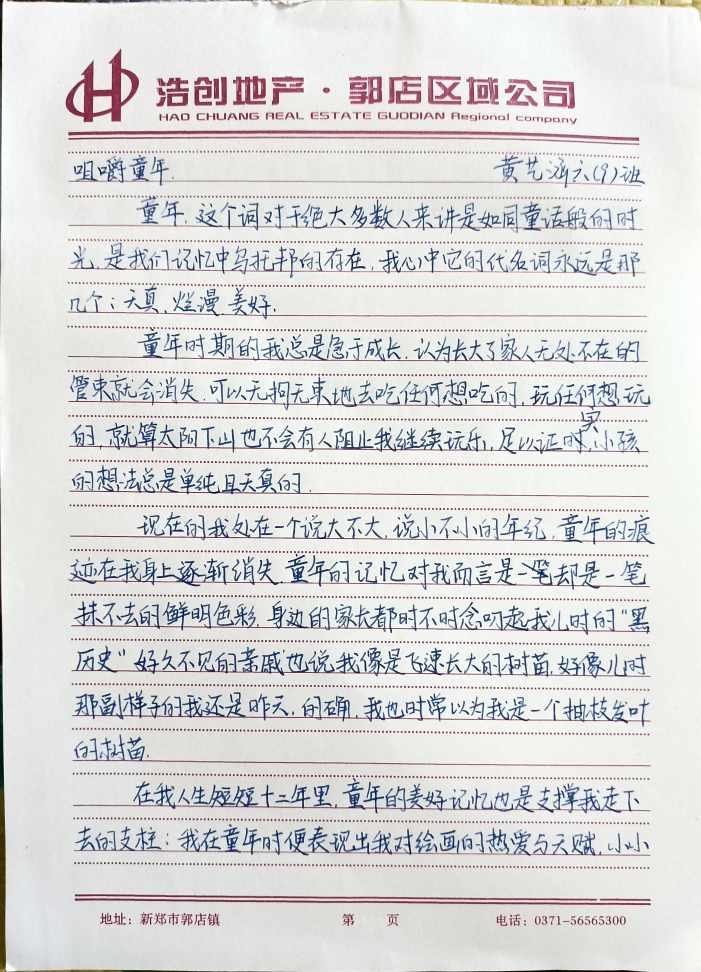 浩创地产·郭店区域公司
HAO CHUANG REAL ESTATE GUODIAN Regional company
咀嚼童年. 黄艺涵六(9)班
童年,这个词对于绝大多数人来讲是如同童话般的时
光,是我们记忆中乌托邦的存在,我心中它的代名词永远是那
几个:天真,烂漫,美好.
童年时期的我总是急于成长,认为长大了家人无处不在的
管束就会消失,可以无拘无束地去吃任何想吃的,玩任何想玩
的,就算太阳下山也不会有人阻止我继续玩乐,足以证实,小孩
的想法总是单纯且天真的.
现在的我处在一个说大不大,说小不小的年纪,童年的痕
迹在我身上逐渐消失,童年的记忆对我而言是却是一笔
抹不去的鲜明色彩,身边的家长都时不时念叨起我儿时的“黑
历史”好久不见的亲戚也说我像是飞速长大的树苗,好像儿时
那副样子的我还是昨天,的确,我也时常以为我是一个抽枝发叶
的树苗.
在我人生短短十二年里,童年的美好记忆也是支撑我走下
去的支柱:我在童年时便表现出我对绘画的热爱与天赋,小小
地址:新郑市郭店镇 第 页 电话:0371-56565300